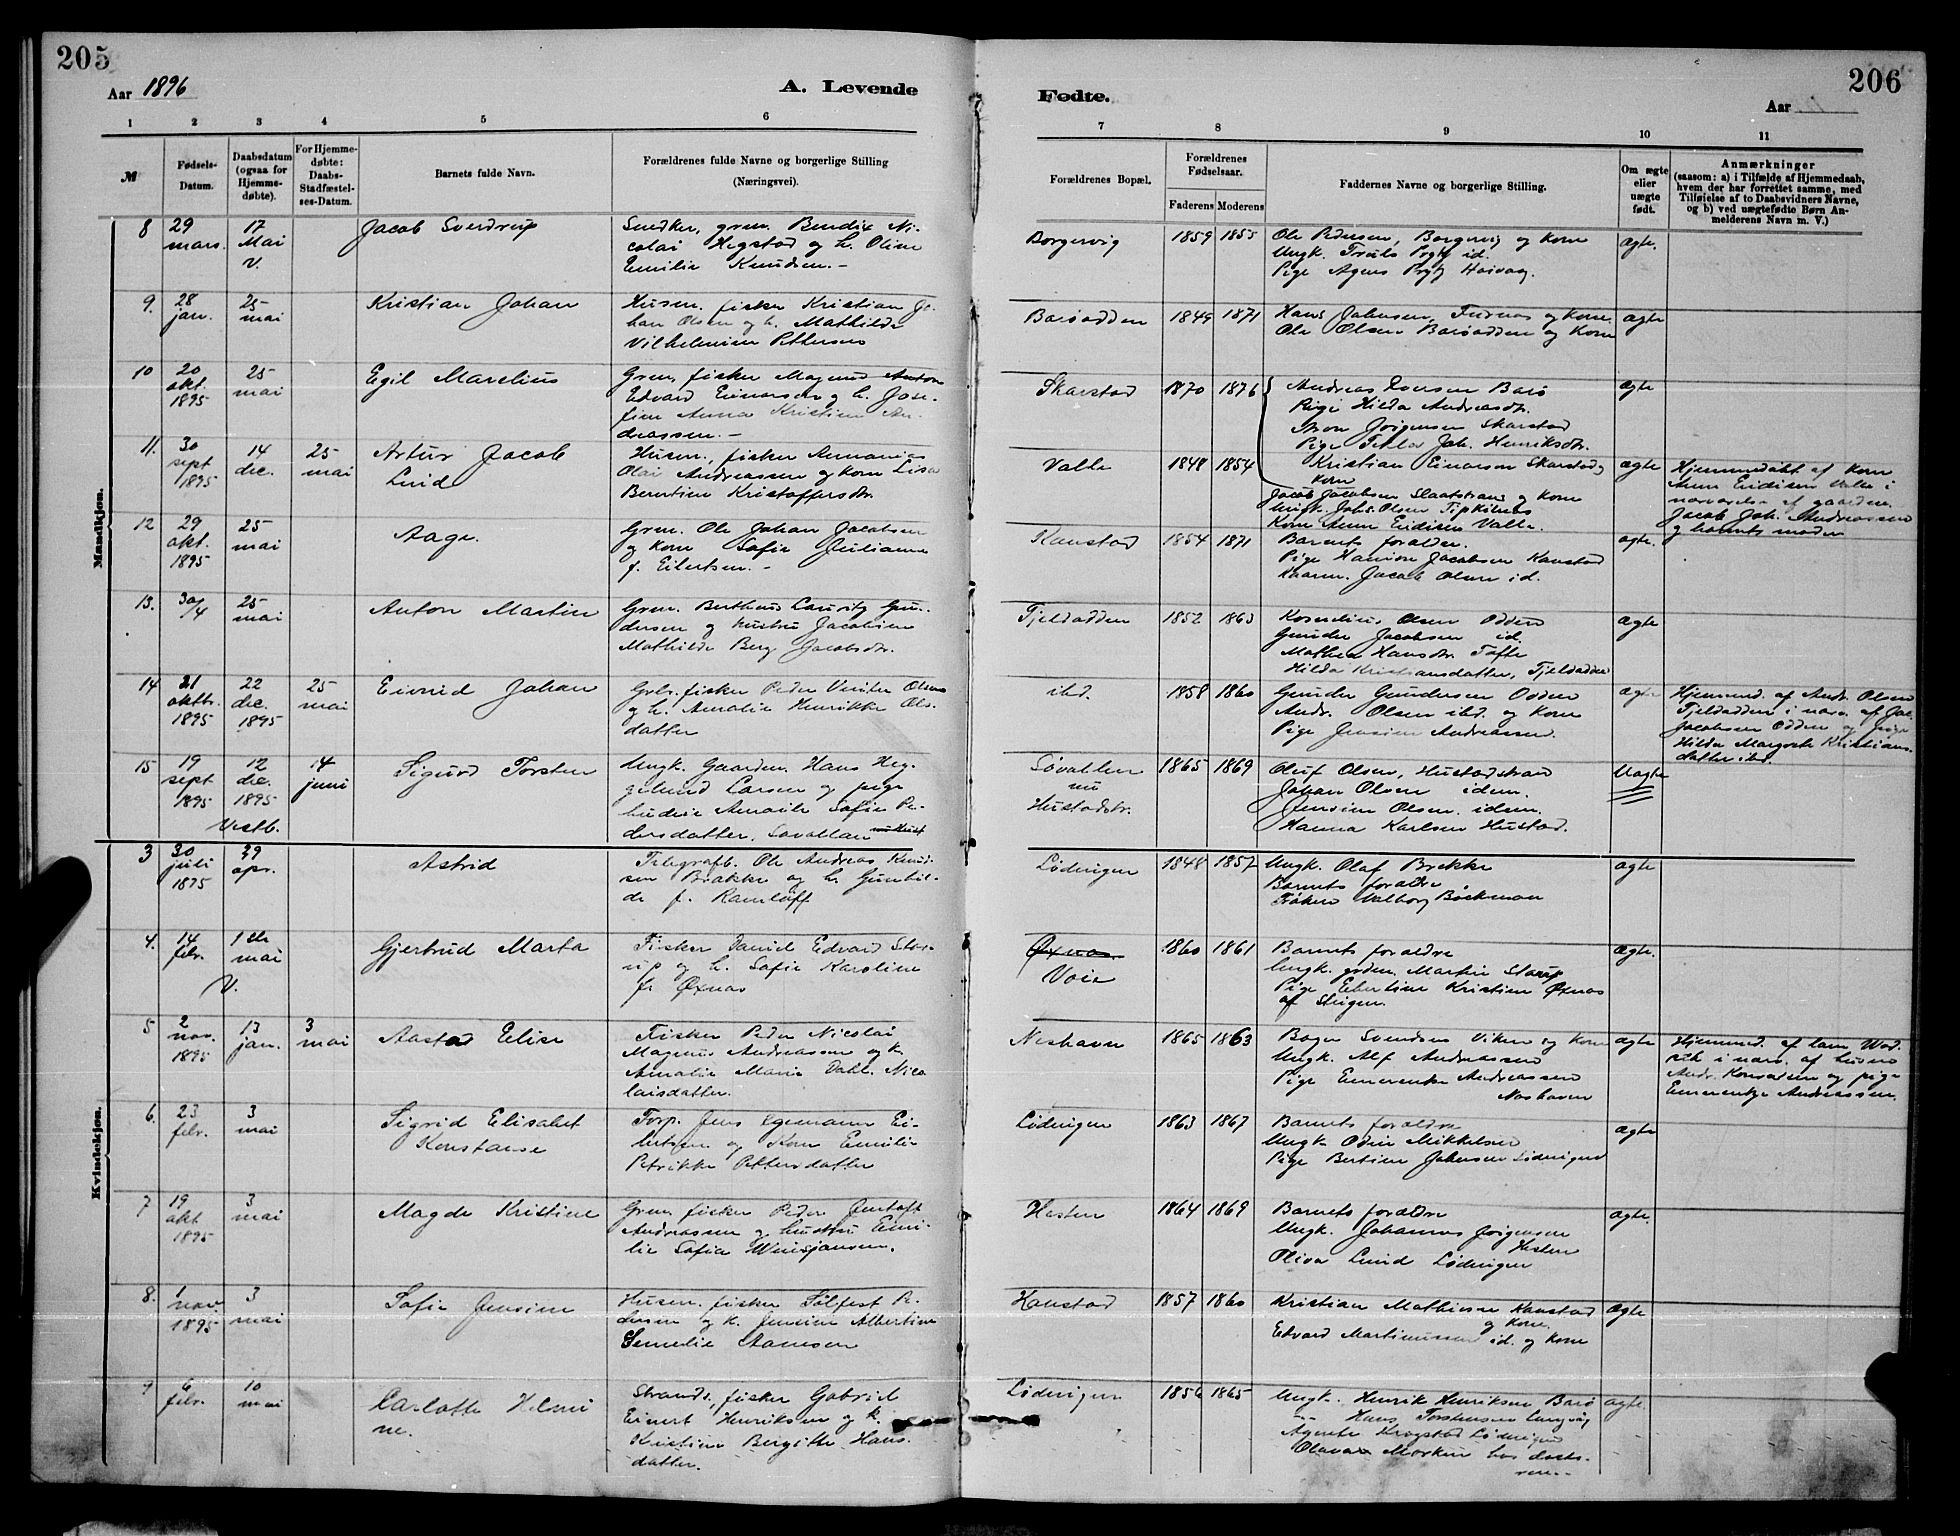 205
206
Aar 1896
A. Levende
Fødte.
Aar
1 2 3 4 5 6
7 8 9 10 11
№
Fødsels-
Datum.
Daabsdatum
(ogsaa for
Hjemme-
døbte).
For Hjemme-
døbte:
Daabs-
Stadfæstel-
ses-Datum.
Barnets fulde Navn.
Forældrenes fulde Navne og borgerlige Stilling
(Næringsvei).
Forældrenes Bopæl.
Forældrenes
Fødselsaar.
Faderens Moderens
Faddernes Navne og borgerlige Stilling.
Om ægte
eller
uægte
født.
Anmærkninger
(saasom: a) i Tilfælde af Hjemmedaab,
hvem der har forrettet samme, med
Tilføielse af to Daabsvidners Navne,
og b) ved uægtefødte Børn An-
melderens Navn m. V.)
Mandkjøn.
8
29
mars.
17
Mai
V.
Jacob Sverdrup
Snedker, grm. Bendix Ni-
colai Hegstad og h. Oline
Emilie Knudsen.-
Borgervig
1859 1855
Ole Pedersen, Borgervig og Kone
Ungk. Troels Prytz id.
Pige Agnes Prytz
ægte.
9.
28
jan.
25
mai
Kristian Johan
Husm. fisker Kristian Jo-
han Olsen og h. Mathilde
Barøodden
1849 1871
Hans Johansen, og Kone.
Ole Olsen Barøodden og Kone
ægte
10
20
okt.
1895
25
mai
Egil Marelius
Grm, fisker Magnus Anton
Edvard Einarsen og h. Jose-
fine Anna Kristine An-
dreassen.-
Skarstad
1870 1876
Andreas Barø
Pige Hilda Andreasdtr.
Jørgensen Skarstad
Pige Tekla Joh. Henriksdtr.
Kristian Einarsen Skarstad og
Kone
ægte
11.
30
sept
1895
14
dec.
25
mai
Artur Jacob
Lind
Husm., fisker Annanias
Olai Andreassen og Kone Lisa
Berntine Kristoffersdtr.
Valle
1848 1854
Jacob Jacobsen Slaatstrand og Kone
Ungk. Johs. Olsen
Kone Anne Valle.
ægte
Hjemmedøbt af Kone
Anne Valle i
nærværelse af gaardm.
Jacob Joh. Andreassen
og barnets moder
12
29
okt.
1895
25
mai
Aage.
Grm. Ole Johan Jacobsen
og Kone Safie Juliane
f. Eilertsen.-
Kanstad
1854 1871
Barnets forældre.
Pige Jacobsen Kanstad
Jacob Olsen id.
ægte.
13.
30/4
25
mai
Anton Martin
Grm. Bertheus Lauritz Gun-
dersen og hustru Jacobine
Mathilde Berg Jacobsdtr.
Tjeldodden
1852 1863
Kornelius Olsen Odden
Gunder Jacobsen id.
Mathea Hansdtr. Tofte
Hilda Kristiansdatter, Tjeldodden
ægte
14
21
oktbr.
1895
22
dec.
1895
25
mai
Eivind Johan
Grbr. fisker Peder Olsen
og h. Amalie Henrikke Ols-
datter
ibd.
1858 1860
Gunder Gundersen Odden
Andr. Olsen ibd. og Kone
Pige Jensine Andreassen.
ægte
Hjemmed. af Andr. Olsen
Tjeldodden i nærv. af Jac.
Jacobsen Odden og pige
Hilda Margrete Kristians-
datter ibd.
15
19
sept
1895
12
dec.
1895
Vestb.
14
juni
Sigurd Torsten
Ungk. Gaardm. Hans Heg-
gelund Larsen og pige
Amalie Safie Pe-
dersdatter, Søvollen
Søvollen
nu
Hustadstr.
1865 1869
Oluf Olsen, Hustadstrand
Johan Olsen idem.
Jensine Olsen. idem.
Hanna Karlsen Hustad.
Uægte
Kvindekjøn.
3
30
juli
1895
29
apr.
Astrid
Telegrafb. Ole Andreas Knud-
sen Brække og h. Gunhil-
de f. Ramløff
Lødingen
1848 1857
Ungk. Olaf Brekke
Barnets forældre
Frøken Valborg Bøckman
ægte
4.
14
febr.
1ste
mai
V.
Gjertrud Marta
Fisker Daniel Edvard Star-
up og h. Safie Karoline
f. Øxnæs
Øxnæs.
Voie
1860 1861
Barnets forældre
Ungk. grdm. Martin Starup
Pige Ebertine Kristine Øxnæs
af Steigen.
ægte.
5
2
nov.
1895
13
jan.
3
mai
Aasta Elise
Fisker Peder Nicolai
Magnus Andreassen og h.
Amalie Marie Dahl. Nico
laisdatter.
Neshavn
1865 1863
Svendsen Viken og Kone
Ungk. Alf Andreassen
Pige Emerentse Andreassen
Neshavn
ægte
Hjemmed. af
i nærv. af
Andr. Konradsen og pige
Emerentze Andreassen.
6.
23
febr.
3
mai
Sigrid Elisabet
Konstanse
Torp. Jens Egemann Ei-
lertsen og Kone Emilie
Petrikke Pettersdatter
Lødingen
1863 1867
Barnets forældre
Ungk. Odin Mikkelsen
Pige Bertine Johansen Lødingen
ægte
7
19
okt
1895
3
mai
Magda Kristine
Grm. fisker Peder Gustaff
Andreassen og hustru Emi-
lie Safie
Hesten
1864 1869
Barnets forældre
Ungk. Johannes Jørgensen
Hesten
Oliva Lund Lødingen
ægte.
8.
1
nov.
1895
3
mai
Safie Jensine
Husm. fisker Sølfest Pe-
dersen og h. Jensine Albertine
Kanstad
1857 1860
Kristian Mathiesen Kanstad
og Kone.
Edvard Martinussen id. og Kone
ægte
9
6
febr.
10
mai
Carlotte Helmi
ne.
Strands., fisker Gabriel
Einert Henriksen og h.
Kristine Bergitte Hans-
datter.
Lødingen
1856 1865
Ungk. Henrik Henriksen Barø
-- Hans Torstensen
Agnete Krogstad Lødingen
Olava hos
ægte.